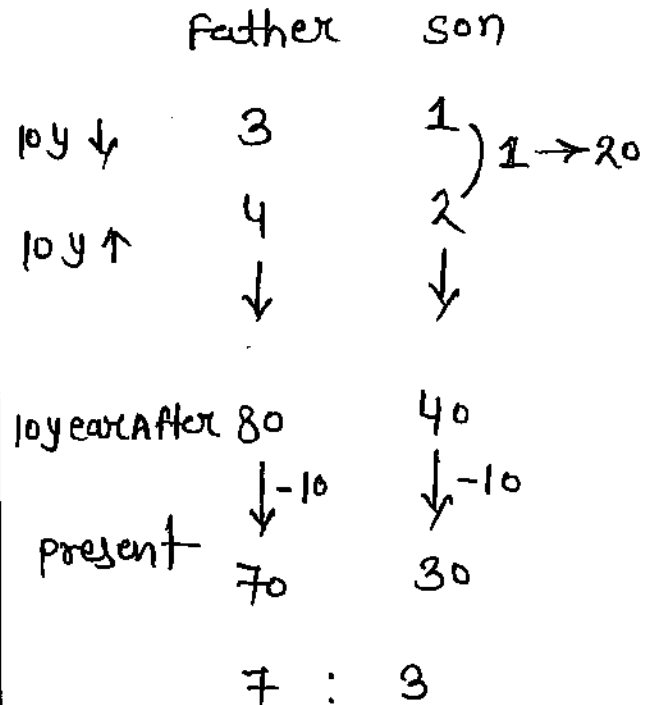 Father son
10y ↓ 3 1
) 1 → 20
10y ↑ 4 2
↓ ↓
10yearAfter 80 40
↓-10 ↓-10
present 70 30
7 : 3